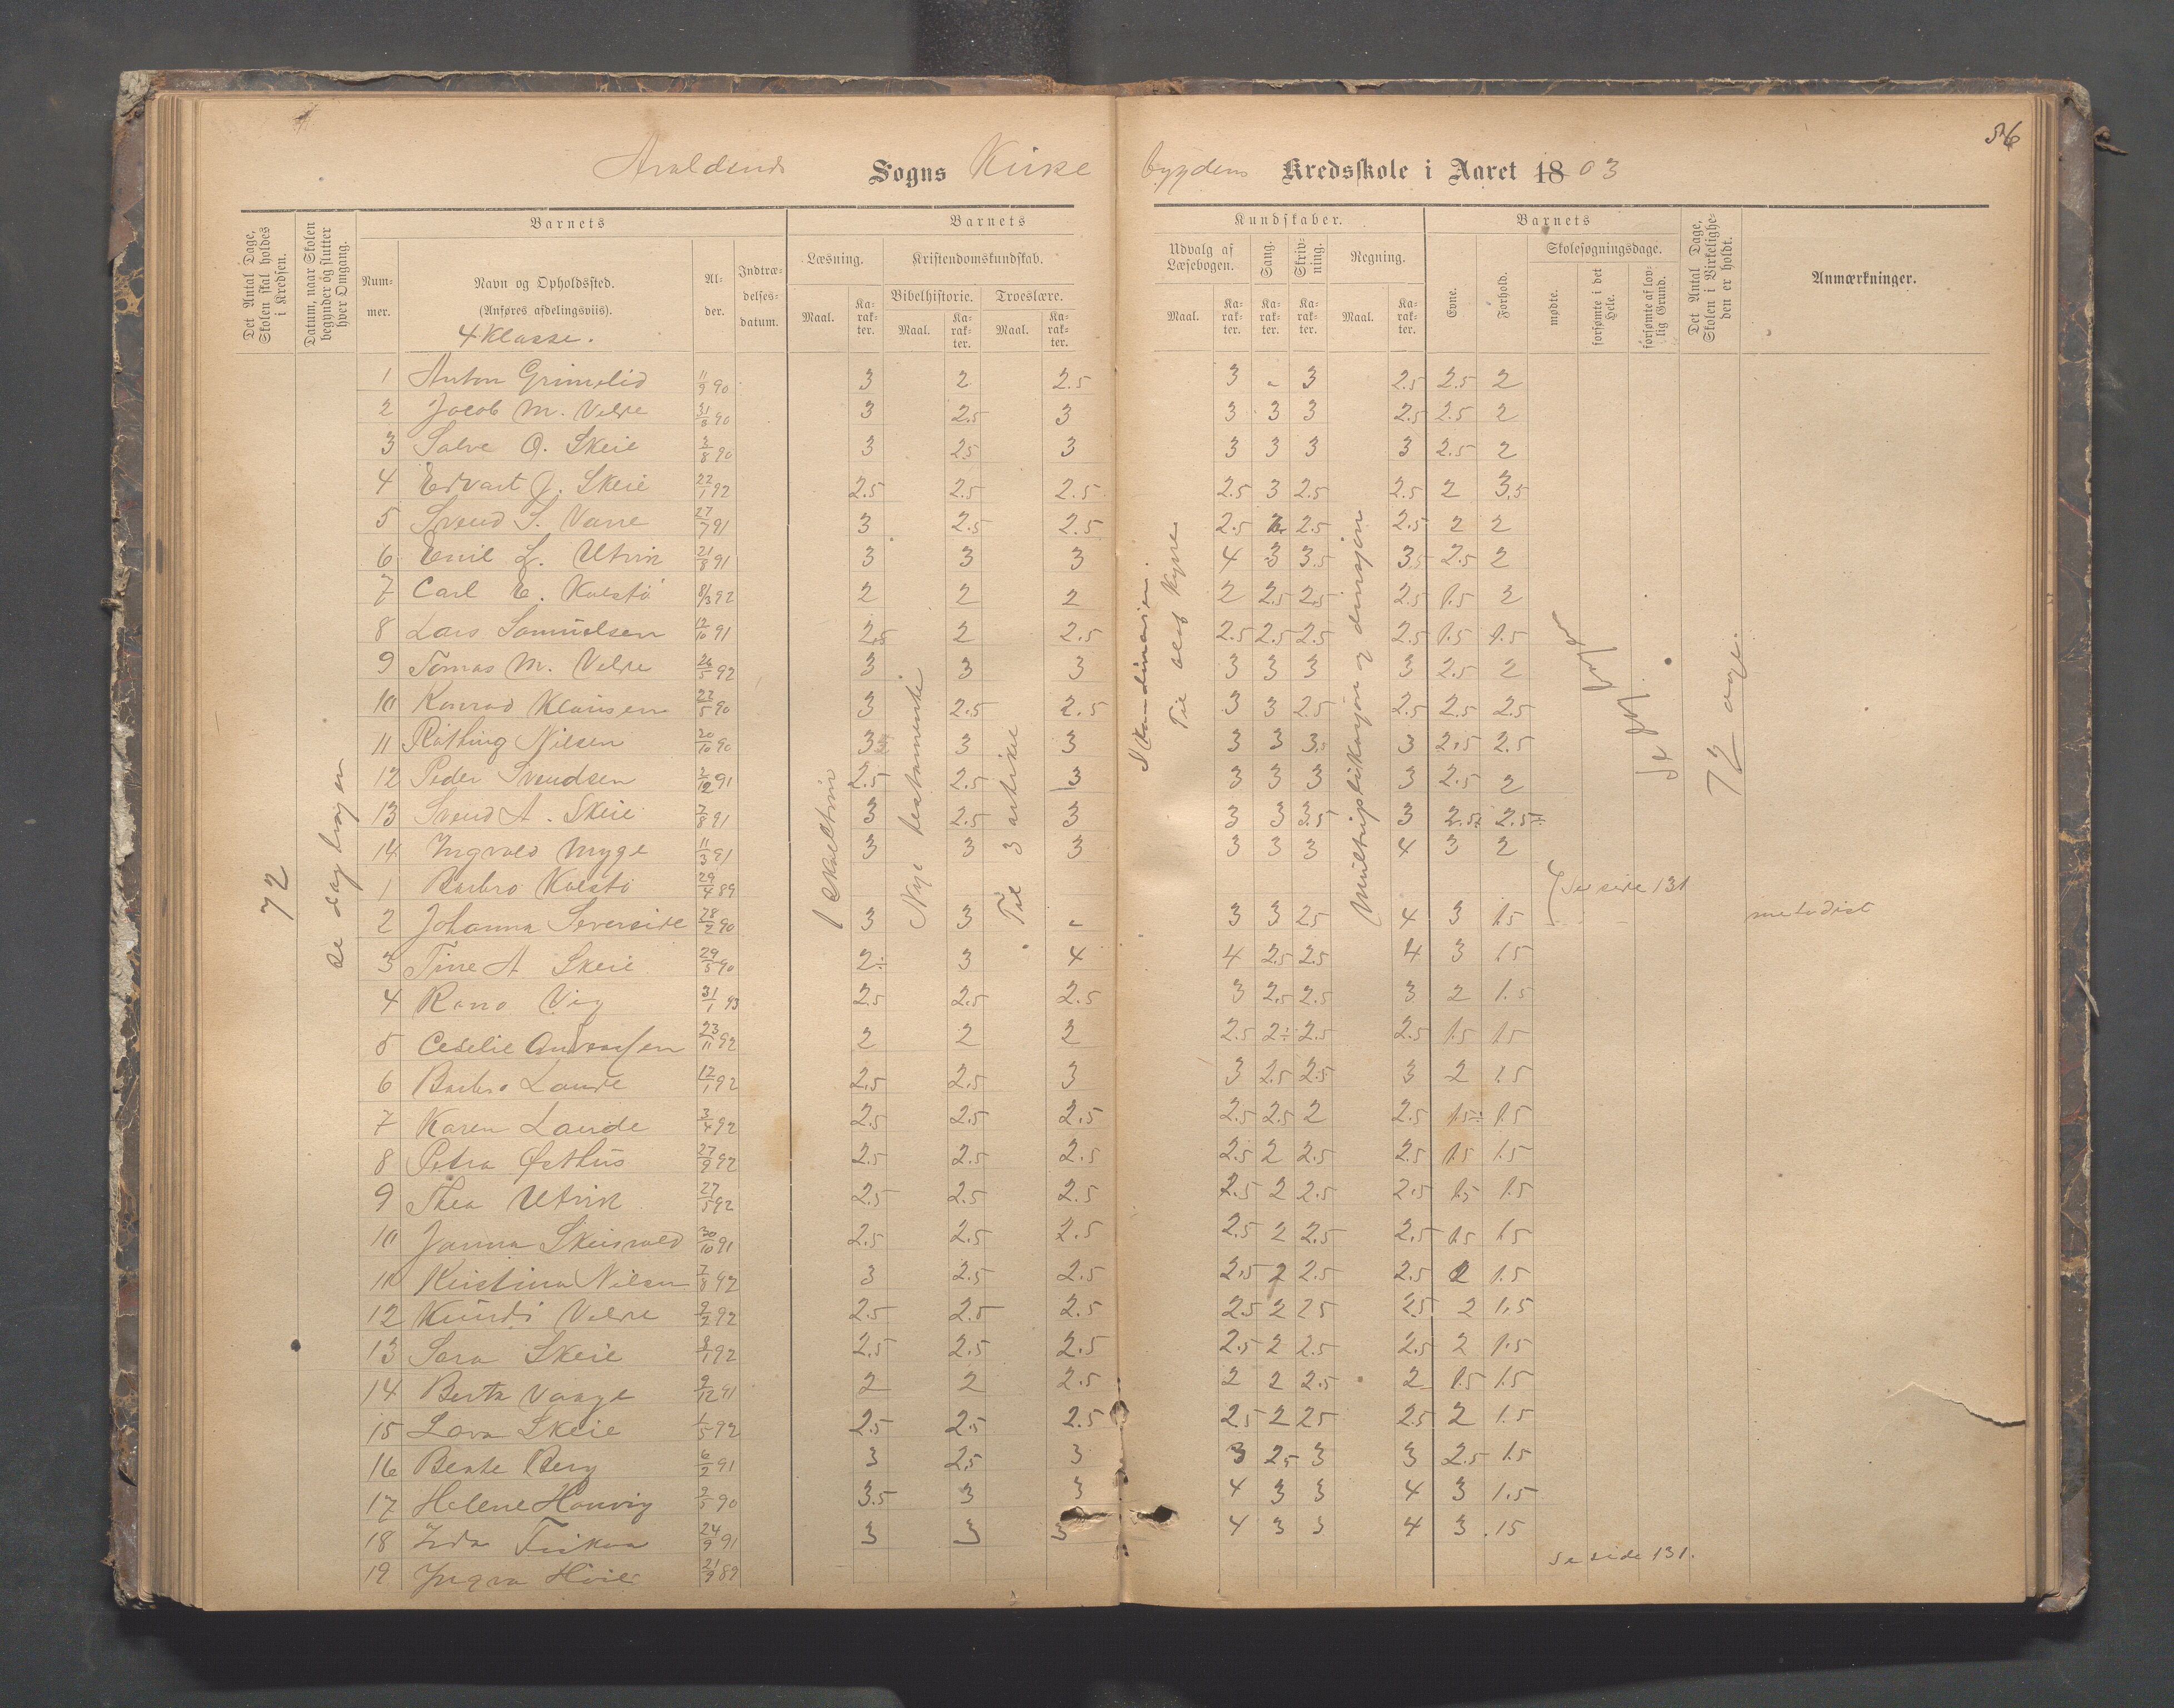 56
Avaldsnes Sogns Kirke bygdens Kredsskole i Aaret 18 03
Det Antal Dage, Skolen skal holdes i Kredsen.
Datum, naar Skolen begynder og slutter hver Omgang.
Barnets
Nummer.
Navn og Opholdssted. (Anføres afdelingsviis).
4 Klasse.
Alder.
Indtrædelsesdatum.
Barnets Kundskaber.
Læsning.
Maal. Karakter.
Kristendomskundskab.
Bibelhistorie. Troeslære.
Maal. Karakter. Maal. Karakter.
Udvalg af Læsebogen.
Maal. Karakter.
Sang. Karakter.
Skrivning. Karakter.
Regning.
Maal. Karakter.
Barnets
Evne.
Forhold.
Skolesøgningsdage.
mødte.
forsømte i det Hele.
forsømte af lovlig Grund.
Det Antal Dage, Skolen i Virkeligheden er holdt.
Anmærkninger.
72
se dagbogen
Nye testamente
Til 3 artikel
Skandinavien.
Multriplikasjon og divisjon
72 dage.
1 Anton Grimslid 11/9 90 3 2 2.5 3 - 3 2.5 2.5 2
2 Jacob M. Velde 31/8 90 3 2.5 3 3 3 3 2.5 2.5 2
3 Salve O. Skeie 3/8 90 3 2.5 3 3 3 3 3 2.5 2
4 Edvart J. Skeie 22/1 92 2.5 2.5 2.5 2.5 3 2.5 2.5 2 3.5
5 Svend S. Varre 27/7 91 3 2.5 2.5 2.5 2.5 2.5 2 2
6 Emil L. Utvik 21/8 91 3 3 3 4 3 3.5 3.5 2.5 2
7 Carl E. Kolstø 8/3 92 2 2 2 2 2.5 2.5 2.5 1.5 2
8 Lars Samuelsen 12/10 91 2.5 2 2.5 2.5 2.5 2.5 2.5 1.5 1.5
9 Tomas M. Velde 26/5 92 3 3 3 3 3 3 3 2.5 2
10 Konrad Klausen 22/5 90 3 2.5 2.5 3 3 2.5 2.5 2.5 2.5
11 Nilsen 20/10 90 3 3 3 3 3 3.5 3 2.5 2.5
12 Peder Svendsen 2/12 91 2.5 2.5 3 3 3 3 3 2.5 2
13 Svend A. Skeie 7/8 91 3 2.5 3 3 3 3.5 3 2.5 2.5
14 Ingvald Myge 11/3 91 3 3 3 3 3 3 4 3 2
1 Barbro Kolstø 29/4 89 Se side 131
2 Johanna Severside 28/2 90 3 3 - 3 3 2.5 4 3 1.5 metodist
3 Tine A Skeie 29/5 90 2÷ 3 4 4 2.5 2.5 4 3 1.5
4 Rana Vig 31/1 93 2.5 2.5 2.5 3 2.5 2.5 3 2 1.5
5 Ceselie Andreassen 23/11 92 2 2 2 2.5 2÷ 2.5 2.5 1.5 1.5
6 Barbro Lande 12/1 92 2.5 2.5 3 3 2.5 2.5 3 2 1.5
7 Karen Lande 3/4 92 2.5 2.5 2.5 2.5 2.5 2 2.5 1.5÷ 1.5
8 Petra Østhus 27/9 92 2.5 2.5 2.5 2.5 2 2.5 2.5 1.5 1.5
9 Thea Utvik 27/5 92 2.5 2.5 2.5 2.5 2 2.5 2.5 1.5 1.5
10 Janna Skeisvold 30/10 91 2.5 2.5 2.5 2.5 2 2.5 2.5 1.5 1.5
11 Kristina Nilsen 7/8 92 3 2.5 2.5 2.5 2 2.5 2.5 2 1.5
12 Velde 2/2 92 2.5 2.5 2.5 2.5 2 2.5 2.5 2 1.5
13 Sara Skeie 3/1 92 2.5 2.5 2.5 2.5 2 2.5 2.5 2 1.5
14 Berta Vaage 2/12 91 2 2 2.5 2 2 2.5 2 1.5 1.5
15 Lava Skeie 1/5 92 2.5 2.5 2.5 2.5 2 2.5 2.5 2 1.5
16 Bente Berg 6/2 91 3 2.5 3 3 2.5 3 3 2.5 1.5
17 Helene Hauvig 2/5 90 3.5 3 3 4 3 3 4 3 1.5
18 Inda 24/9 91 3 3 3 4 3 3 4 3 1.5
19 Ingva 21/9 89 Se side 131.